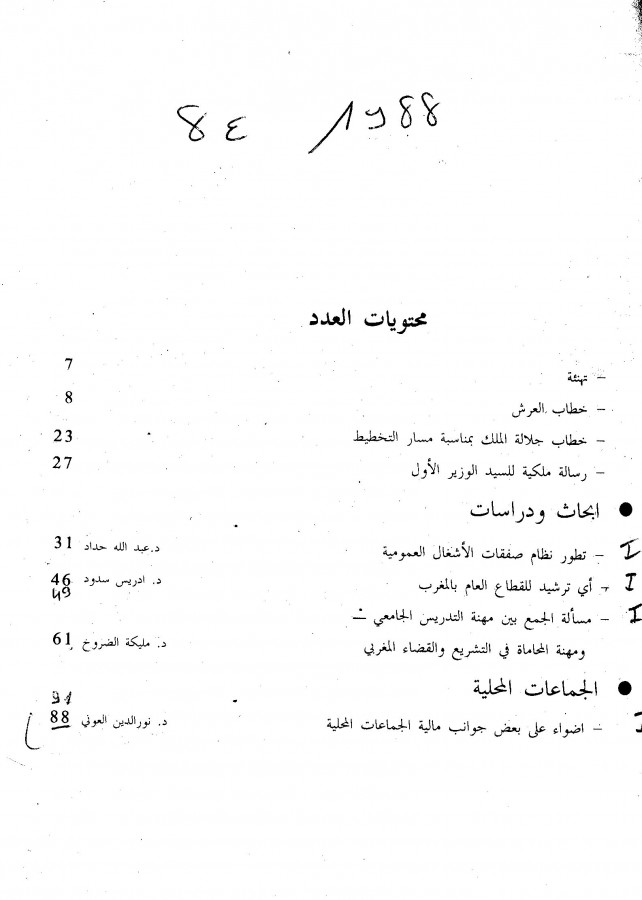 8 ع 1988
محتويات العدد
– تهنئة 7
– خطاب العرش 8
– خطاب جلالة الملك بمناسبة مسار التخطيط 23
– رسالة ملكية للسيد الوزير الأول 27
● ابحاث ودراسات
I – تطور نظام صفقات الأشغال العمومية د.عبد الله حداد 31
I – أي ترشيد للقطاع العام بالمغرب د. ادريس سدود 46
49
I – مسألة الجمع بين مهنة التدريس الجامعي –
ومهنة المحاماة في التشريع والقضاء المغربي د. مليكة الضروخ 61
● الجماعات المحلية
91
I – اضواء على بعض جوانب مالية الجماعات المحلية د. نورالدين العوني 88